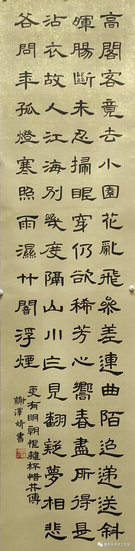 高閣客竟去小園花亂飛參差連曲陌迢遞送斜
暉腸斷未忍掃眼穿仍欲稀芳心嚮春盡所得是
沾衣故人江海別幾度隔山川乍見翻疑夢相悲
各問年孤燈寒照雨濕竹闇浮煙
更有明朝恨離杯惜共傳
謝澤靖書